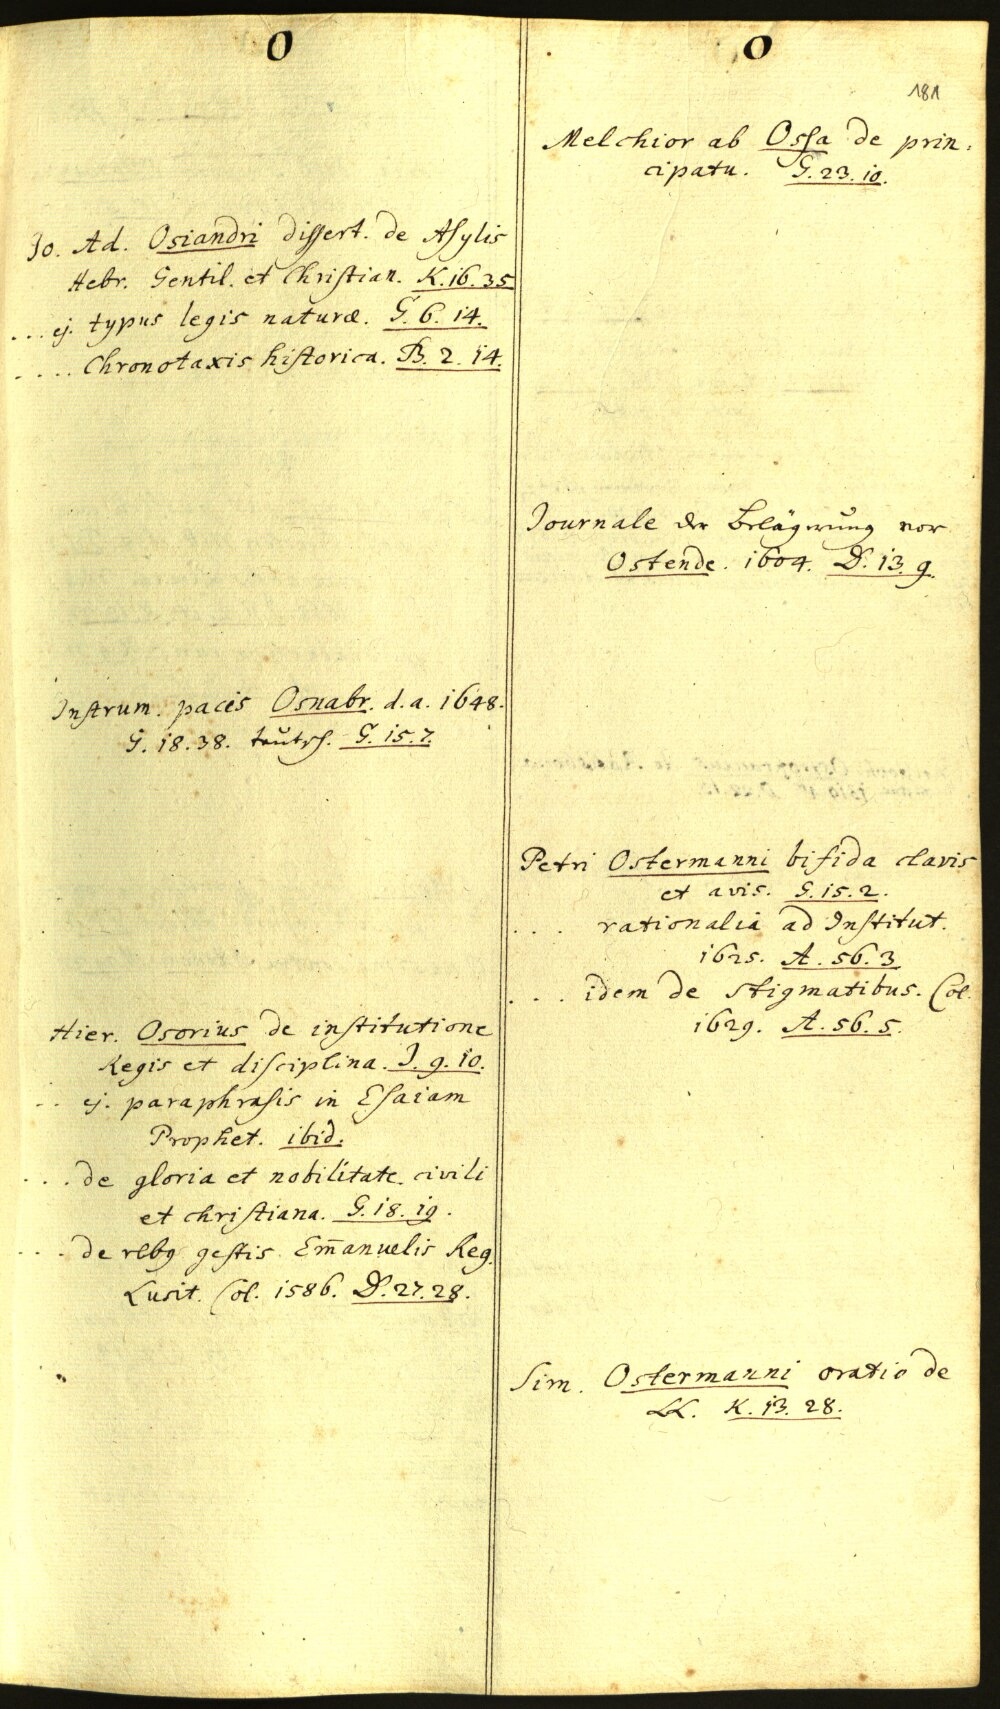 O
Jo. Ad. Osiandri dissert. de Asylis
Hebr. Gentil. et Christian. K. 16. 35
... ej. typus legis naturæ. G. 6. 14.
.... Chronotaxis historica. B. 2. 14.
Instrum. pacis Osnabr. d. a. 1648.
G. 18. 38. teutsch. G. 15. 7.
Hier. Osorius de institutione
Regis et disciplina. J. 9. 10.
.. ej. paraphrasis in Esaiam
Prophet. ibid.
... de gloria et nobilitate civili
et christiana. G. 18. 19.
... de rebꝰ gestis Em̄anuelis Reg.
Lusit. Col. 1586. D. 27. 28.
O
181
Melchior ab Ossa de prin-
cipatu. G. 23. 10.
Journale der Belägerung vor
Ostende. 1604. D. 13. 9.
Petri Ostermanni bifida clavis
et avis. G. 15. 2.
.... rationalia ad Institut.
1625. A. 56. 3
... idem de stigmatibus. Col.
1629. A. 56. 5.
Sim. Ostermanni oratio de
LL. K. 13. 28.